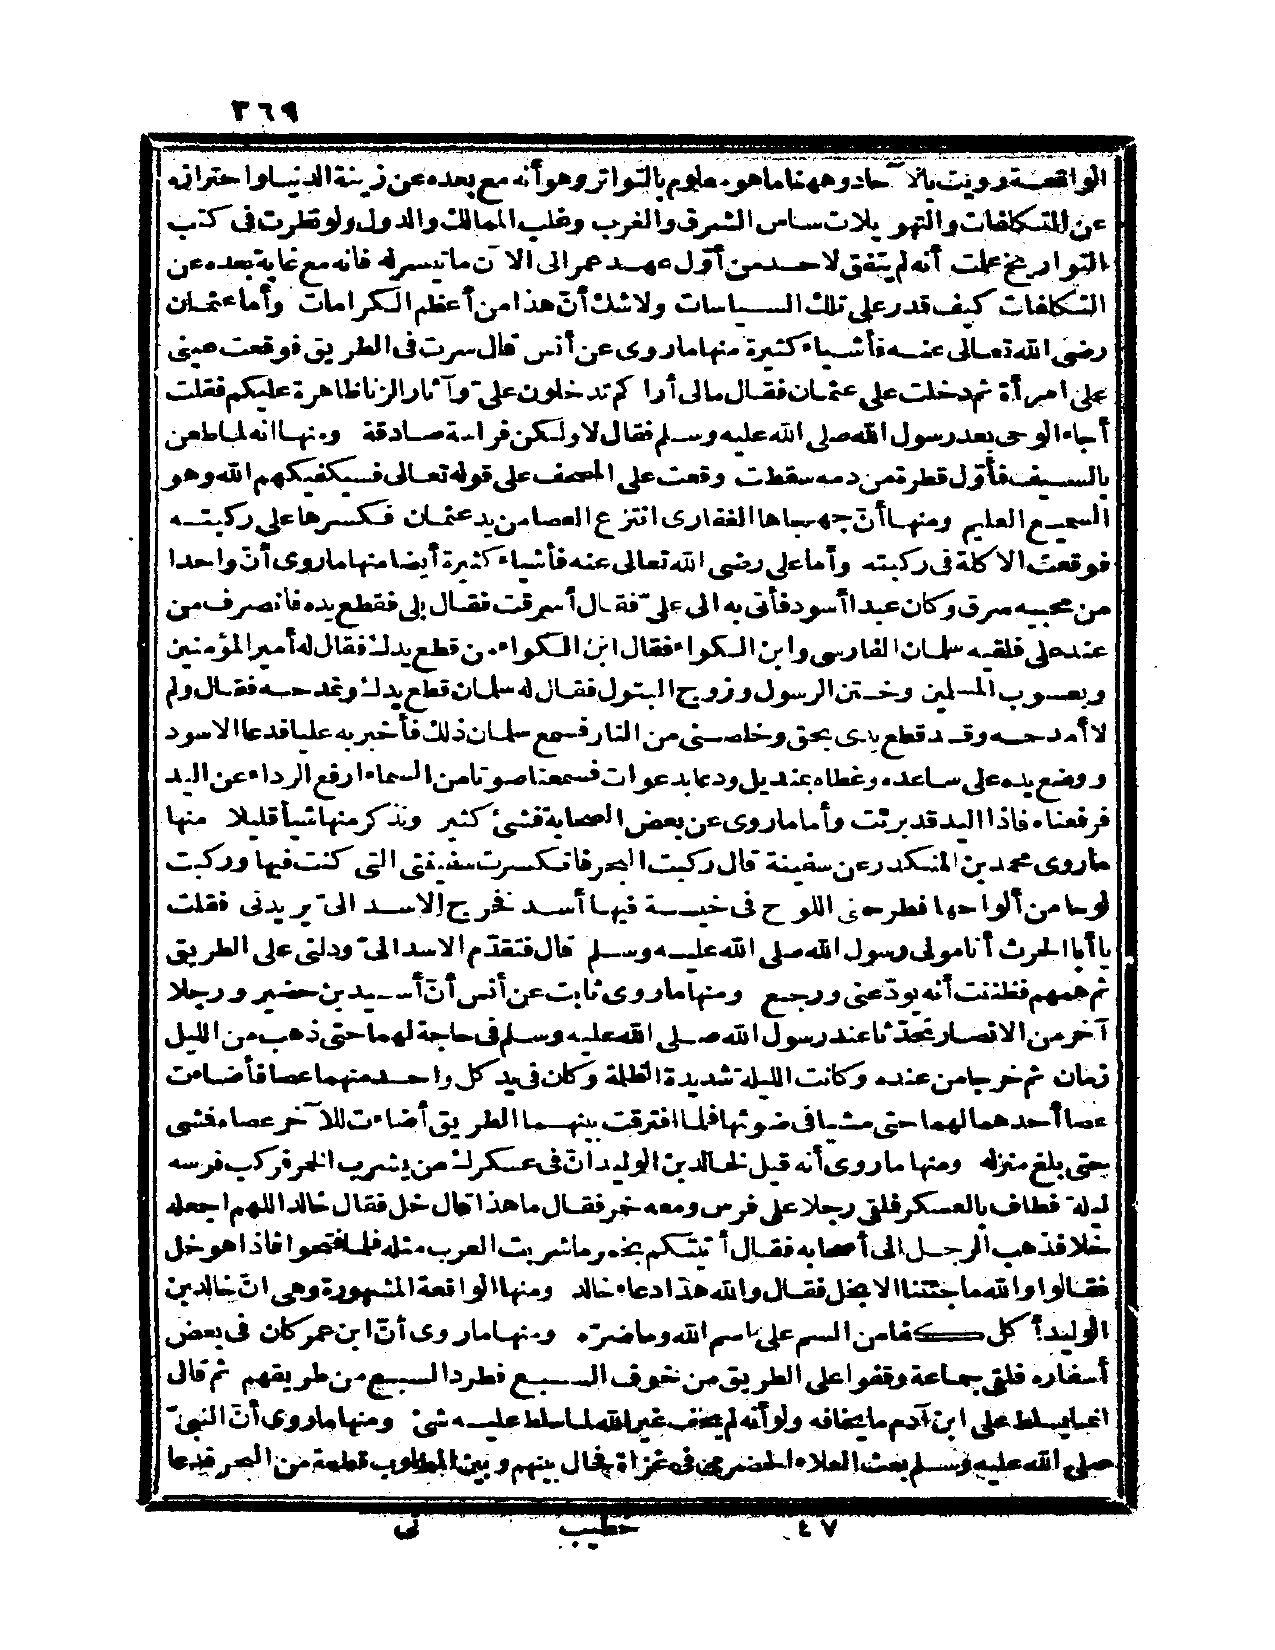 ٣٦٩
الواقعة رويت بالآحاد وههنا ما هو معلوم بالتواتر وهو أنه مع بعده عن زينة الدنيا واحترازه
عن التكلفات والتهويلات ساس الشرق والغرب وغلب الممالك والدول ولو نظرت فى كتب
التواريخ علمت أنه لم يتفق لاحد من أوّل عهد عمر الى الآن ما تيسر له فانه مع غاية بعده عن
التكلفات كيف قدر على تلك السياسات ولا شك أنّ هذا من أعظم الكرامات وأما عثمان
رضى الله تعالى عنه فأشياء كثيرة منها ما روى عن أنس قال سرت فى الطريق فوقعت عينى
على امرأة ثم دخلت على عثمان فقال مالى أراكم تدخلون علىّ وآثار الزنا ظاهرة عليكم فقلت
أجاء الوحى بعد رسول الله صلى الله عليه وسلم فقال لا ولكن فراسة صادقة ومنها انه لما طعن
بالسيف فأوّل قطرة من دمه سقطت وقعت على المصحف على قوله تعالى فسيكفيكهم الله وهو
السميع العليم ومنها أنّ جهجاها الغفارى انتزع العصا من يد عثمان فكسرها على ركبته
فوقعت الاكلة فى ركبته وأما على رضى الله تعالى عنه فأشياء كثيرة أيضا منها ما روى أنّ واحدا
من محبيه سرق وكان عبدا أسود فأتى به الى علىّ فقال أسرقت فقال بلى فقطع يده فانصرف من
عند على فلقيه سلمان الفارسى وابن الكواء فقال ابن الكواء من قطع يدك فقال له أمير المؤمنين
ويعسوب المسلمين وختن الرسول وزوج البتول فقال له سلمان قطع يدك وتمدحه فقال ولم
لا أمدحه وقد قطع يدى بحق وخلصنى من النار فسمع سلمان ذلك فأخبر به عليا فدعا الاسود
ووضع يده على ساعده وغطاه بمنديل ودعا بدعوات فسمعنا صوتا من السماء ارفع الرداء عن اليد
فرفعناه فاذا اليد قد برئت وأما ما روى عن بعض الصحابة فشئ كثير ونذكر منها شيأ قليلا منها
ما روى محمد بن المنكدر عن سفينة قال ركبت البحر فانكسرت سفينتى التى كنت فيها وركبت
لوحا من ألواحها فطرحنى اللوح فى خيسة فيها أسد فخرج الاسد الىّ يريدنى فقلت
يا أبا الحرث أنا مولى رسول الله صلى الله عليه وسلم قال فتقدّم الاسد الىّ ودلنى على الطريق
ثم همهم فظننت أنه يودّعنى ورجع ومنها ما روى ثابت عن أنس أنّ أسيد بن حضير ورجلا
آخر من الانصار تحدّثا عند رسول الله صلى الله عليه وسلم فى حاجة لهما حتى ذهب من الليل
زمان ثم خرجا من عنده وكانت الليلة شديدة الظلمة وكان فى يد كل واحد منهما عصا فأضاءت
عصا أحدهما لهما حتى مشيا فى ضوئها فلما افترقت بينهما الطريق أضاءت للآخر عصاه فمشى
حتى بلغ منزله ومنها ما روى أنه قيل لخالد بن الوليد انّ فى عسكرك من يشرب الخمر فركب فرسه
ليلة فطاف بالعسكر فلقى رجلا على فرس ومعه خمر فقال ما هذا قال خل فقال خالد اللهم اجعله
خلا فذهب الرجل الى أصحابه فقال أتيتكم بخمر ما شربت العرب مثله فلما فتحوا فاذا هو خل
فقالوا والله ما جئتنا الا بخل فقال والله هذا دعاء خالد ومنها الواقعة المشهورة وهى انّ خالد بن
الوليد أكل كفا من السم على اسم الله وما ضرّه ومنها ما روى أنّ ابن عمر كان فى بعض
أسفاره فلقى جماعة وقفوا على الطريق من خوف السبع فطرد السبع من طريقهم ثم قال
انما يسلط على ابن آدم ما يخافه ولو أنه لم يخف غير الله لما سلط عليه شئ ومنها ما روى أنّ النبىّ
صلى الله عليه وسلم بعث العلاء الحضرمى فى غزاة فحال بينهم وبين المطلوب قطعة من البحر فدعا
٤٧ خطيب نى